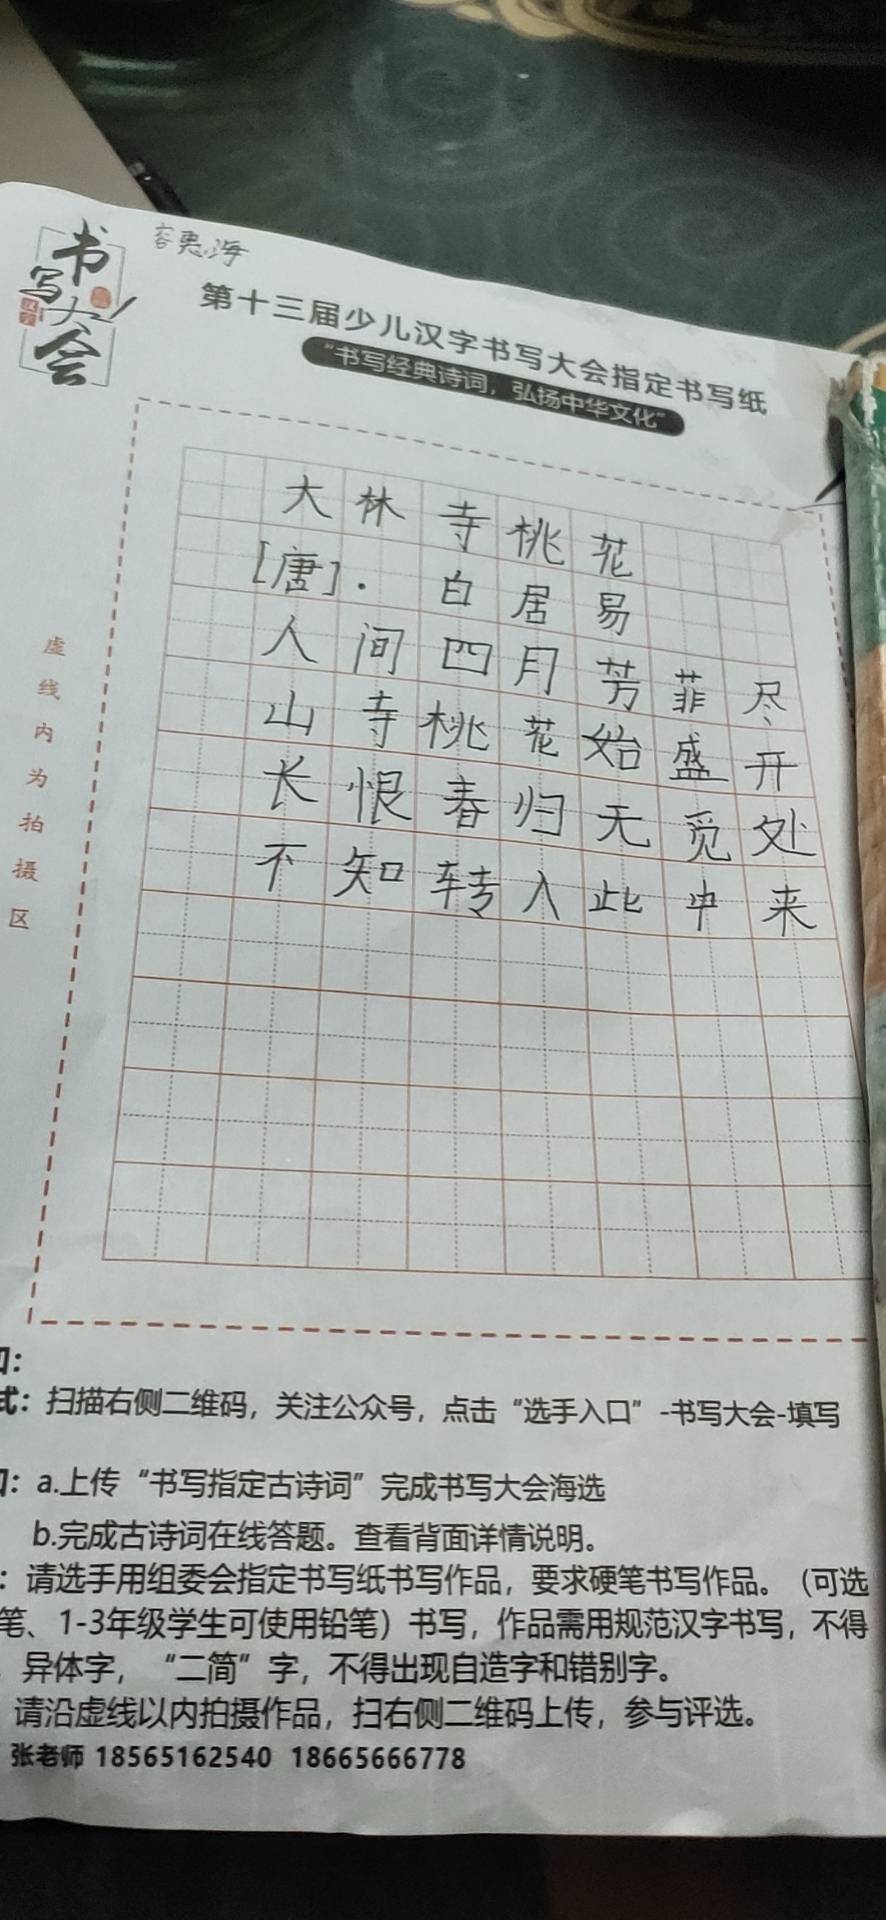 书写大会
容惠海
第十三届少儿汉字书写大会指定书写纸
“书写经典诗词，弘扬中华文化”
大林寺桃花
[唐]·白居易
人间四月芳菲尽
山寺桃花始盛开
长恨春归无觅处
不知转入此中来
虚线内为拍摄区
式：扫描右侧二维码，关注公众号，点击“选手入口”-书写大会-填写
a.上传“书写指定古诗词”完成书写大会海选
b.完成古诗词在线答题。查看背面详情说明。
：请选手用组委会指定书写纸书写作品，要求硬笔书写作品。（可选
笔、1-3年级学生可使用铅笔）书写，作品需用规范汉字书写，不得
异体字，“二简”字，不得出现自造字和错别字。
请沿虚线以内拍摄作品，扫右侧二维码上传，参与评选。
张老师 18565162540 18665666778